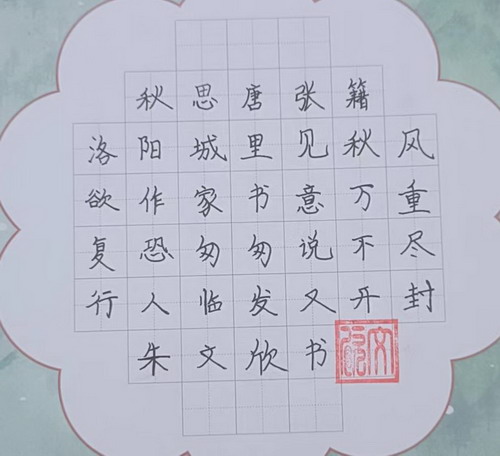 秋思唐张籍
洛阳城里见秋风
欲作家书意万重
复恐匆匆说不尽
行人临发又开封
朱文欣书